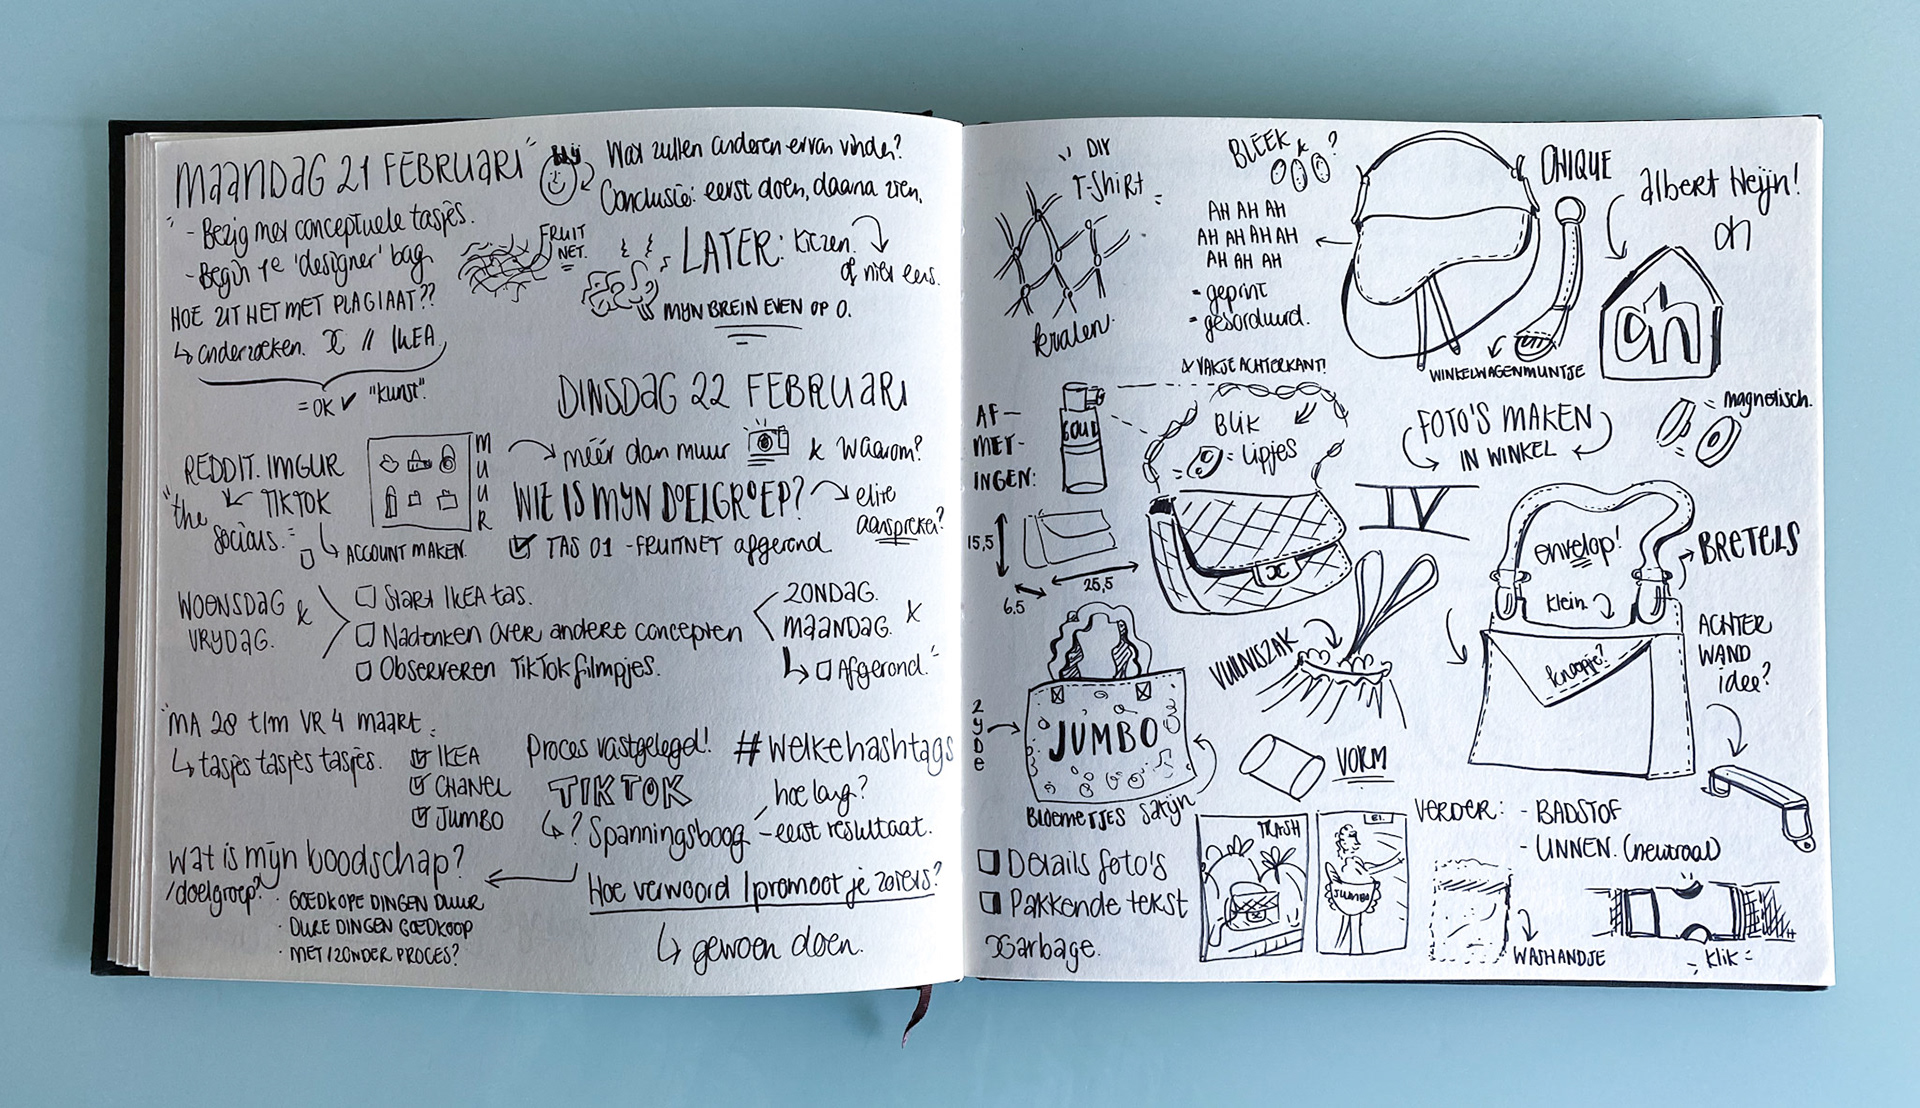 MAANDAG 21 FEBRUARI
- Bezig met conceptuele tasjes.
- Begin 1e 'designer' bag
HOE ZIT HET MET PLAGIAAT??
↳ onderzoeken. X // IKEA
= OK ✓ "kunst".
Wat zullen anderen ervan vinden?
Conclusie: eerst doen, daarna zien.
FRUIT
NET.
LATER: kiezen.
of niet eens.
MIJN BREIN EVEN OP 0.
DINSDAG 22 FEBRUARI
REDDIT. IMGUR
TIKTOK
"the
socials."
↳ ACCOUNT MAKEN.
MUUR
méér dan muur & waarom?
WIE IS MIJN DOELGROEP?
elite
aanspreken?
☑ TAS 01 - FRUITNET afgerond
WOENSDAG &
VRIJDAG.
☐ Start IKEA tas.
☐ Nadenken over andere concepten
☐ Observeren TikTok filmpjes.
ZONDAG.
MAANDAG. &
↳ ☐ Afgerond.
MA 28 t/m VR 4 maart.
↳ tasjes tasjes tasjes.
☑ IKEA
☑ CHANEL
☑ JUMBO
Proces vastgelegd! #welkehashtags
TIKTOK
hoe lang?
↳ ? Spanningsboog - eerst resultaat.
Wat is mijn boodschap?
/doelgroep?
· GOEDKOPE DINGEN DUUR
· DURE DINGEN GOEDKOOP
· MET/ZONDER PROCES?
Hoe verwoord/promoot je zoiets?
↳ gewoon doen.
DIY
T-Shirt
kralen.
BLEEK & ?
AH AH AH
AH AH AH AH
AH AH AH
- geprint
- geborduurd.
& VAKJE ACHTERKANT!
UNIQUE
albert Heijn!
ah
ah
WINKELWAGENMUNTJE
AF-
MET-
INGEN:
GOUD
BLIK
= lipjes
FOTO'S MAKEN
IN WINKEL
= magnetisch.
15,5
6,5
25,5
IV
envelop!
klein.
BRETELS
knoopje?
ACHTER
WAND
idee?
VUILNISZAK
VORM
ZIJDE
JUMBO
BLOEMETJES SATIJN
☐ Details foto's
☐ Pakkende tekst
Garbage.
TRASH
JUMBO
VERDER: - BADSTOF
- LINNEN. (neutraal)
WASHANDJE
- klik -